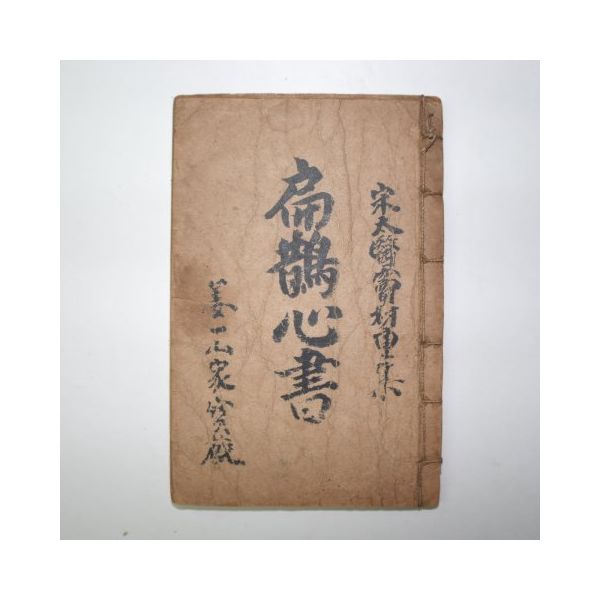 宋太醫竇材重集
扁鵲心書
姜一山家寶藏